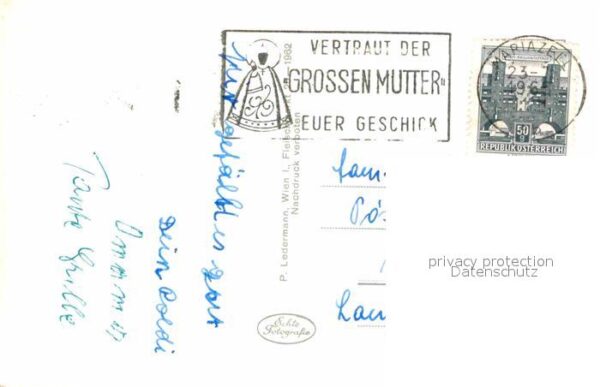 VERTRAUT DER
"GROSSEN MUTTER"
EUER GESCHICK
MARIAZELL
23.-
196
50
REPUBLIK ÖSTERREICH
P. Ledermann, Wien I., Fleisch
1962
Nachdruck verboten
Echte
Fotografie
Mir gefällt es dort
Dein Poldi
Tante Grille
Fam.
Pö
privacy protection
Datenschutz